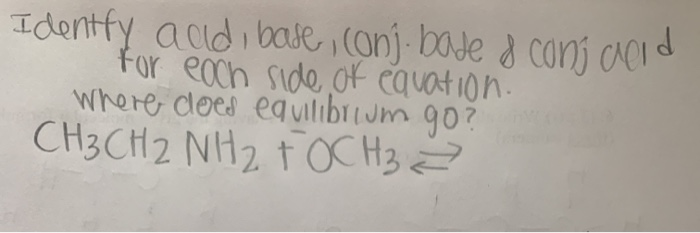 Identify acid, base, conj. base & conj acid
for each side of equation.
where does equilibrium go?
CH3CH2 NH2 + ⁻OCH3 ⇌